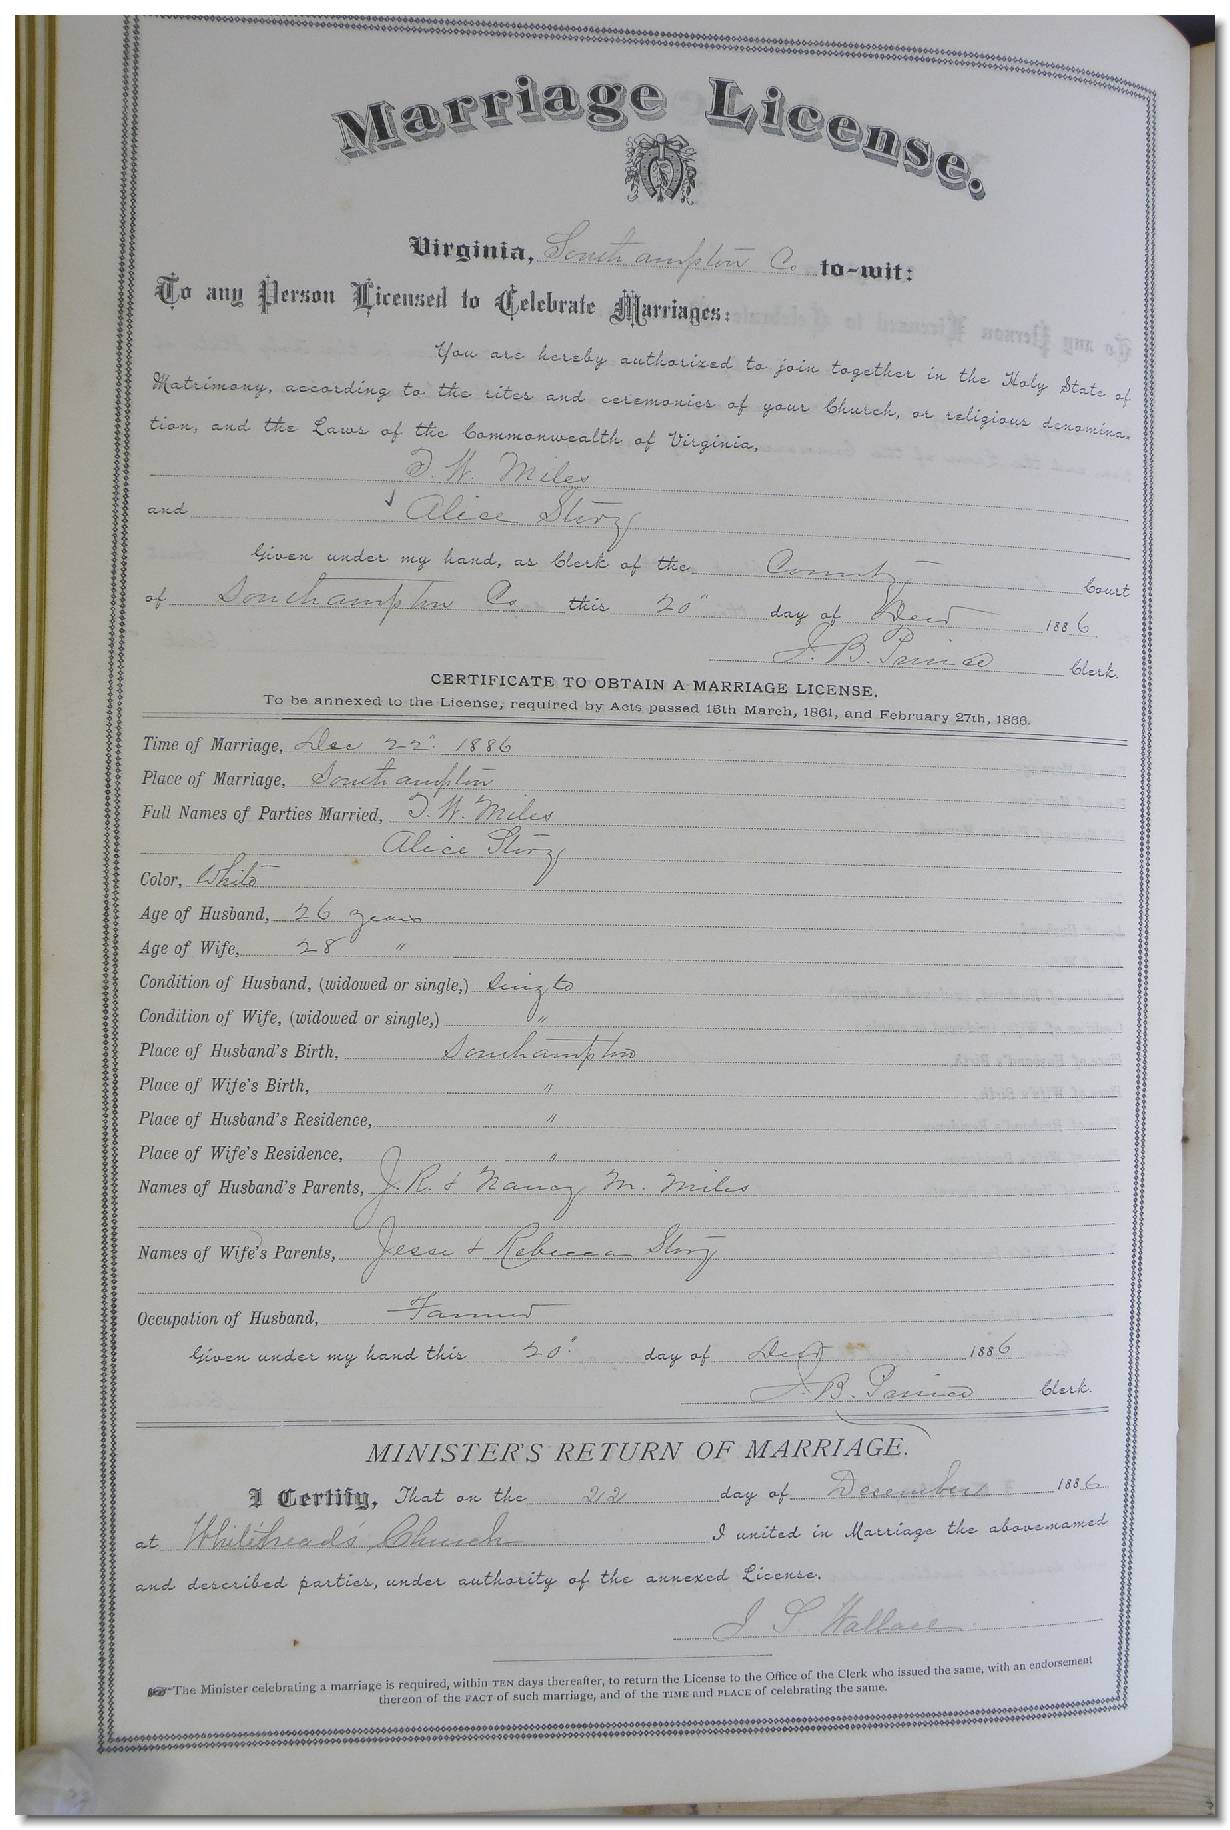 Marriage License.
Virginia, Southampton Co to-wit:
To any Person Licensed to Celebrate Marriages:
You are hereby authorized to join together in the Holy State of
Matrimony, according to the rites and ceremonies of your Church, or religious denomina-
tion, and the Laws of the Commonwealth of Virginia,
T. W. Miles
and Alice Story
Given under my hand, as Clerk of the County Court
of Southampton Co this 20" day of Decr 1886
J. B. Prince Clerk.
CERTIFICATE TO OBTAIN A MARRIAGE LICENSE,
To be annexed to the License, required by Acts passed 15th March, 1861, and February 27th, 1866.
Time of Marriage, Dec 22" 1886
Place of Marriage, Southampton
Full Names of Parties Married, T. W. Miles
Alice Story
Color, White
Age of Husband, 26 years
Age of Wife, 28 "
Condition of Husband, (widowed or single,) Single
Condition of Wife, (widowed or single,) "
Place of Husband's Birth, Southampton
Place of Wife's Birth, "
Place of Husband's Residence, "
Place of Wife's Residence, "
Names of Husband's Parents, J. R. & Nancy M. Miles
Names of Wife's Parents, Jesse & Rebecca Story
Occupation of Husband, Farmer
Given under my hand this 20" day of Decr 1886
J. B. Prince Clerk.
MINISTER'S RETURN OF MARRIAGE.
I Certify, That on the 22 day of December 1886
at Whitehead's Church I united in Marriage the above-named
and described parties, under authority of the annexed License.
J S Wallace
The Minister celebrating a marriage is required, within TEN days thereafter, to return the License to the Office of the Clerk who issued the same, with an endorsement
thereon of the FACT of such marriage, and of the TIME and PLACE of celebrating the same.